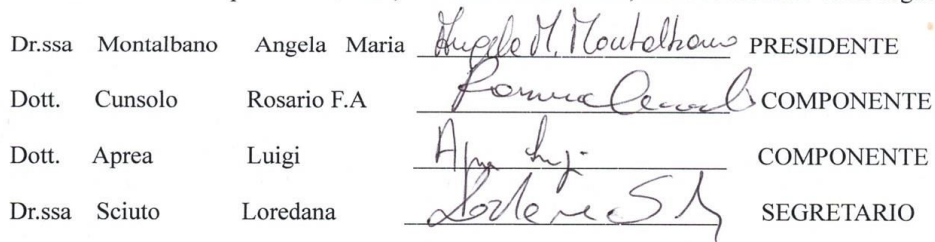 Dr.ssa Montalbano Angela Maria Angela M. Montalbano PRESIDENTE
Dott. Cunsolo Rosario F.A COMPONENTE
Dott. Aprea Luigi COMPONENTE
Dr.ssa Sciuto Loredana SEGRETARIO